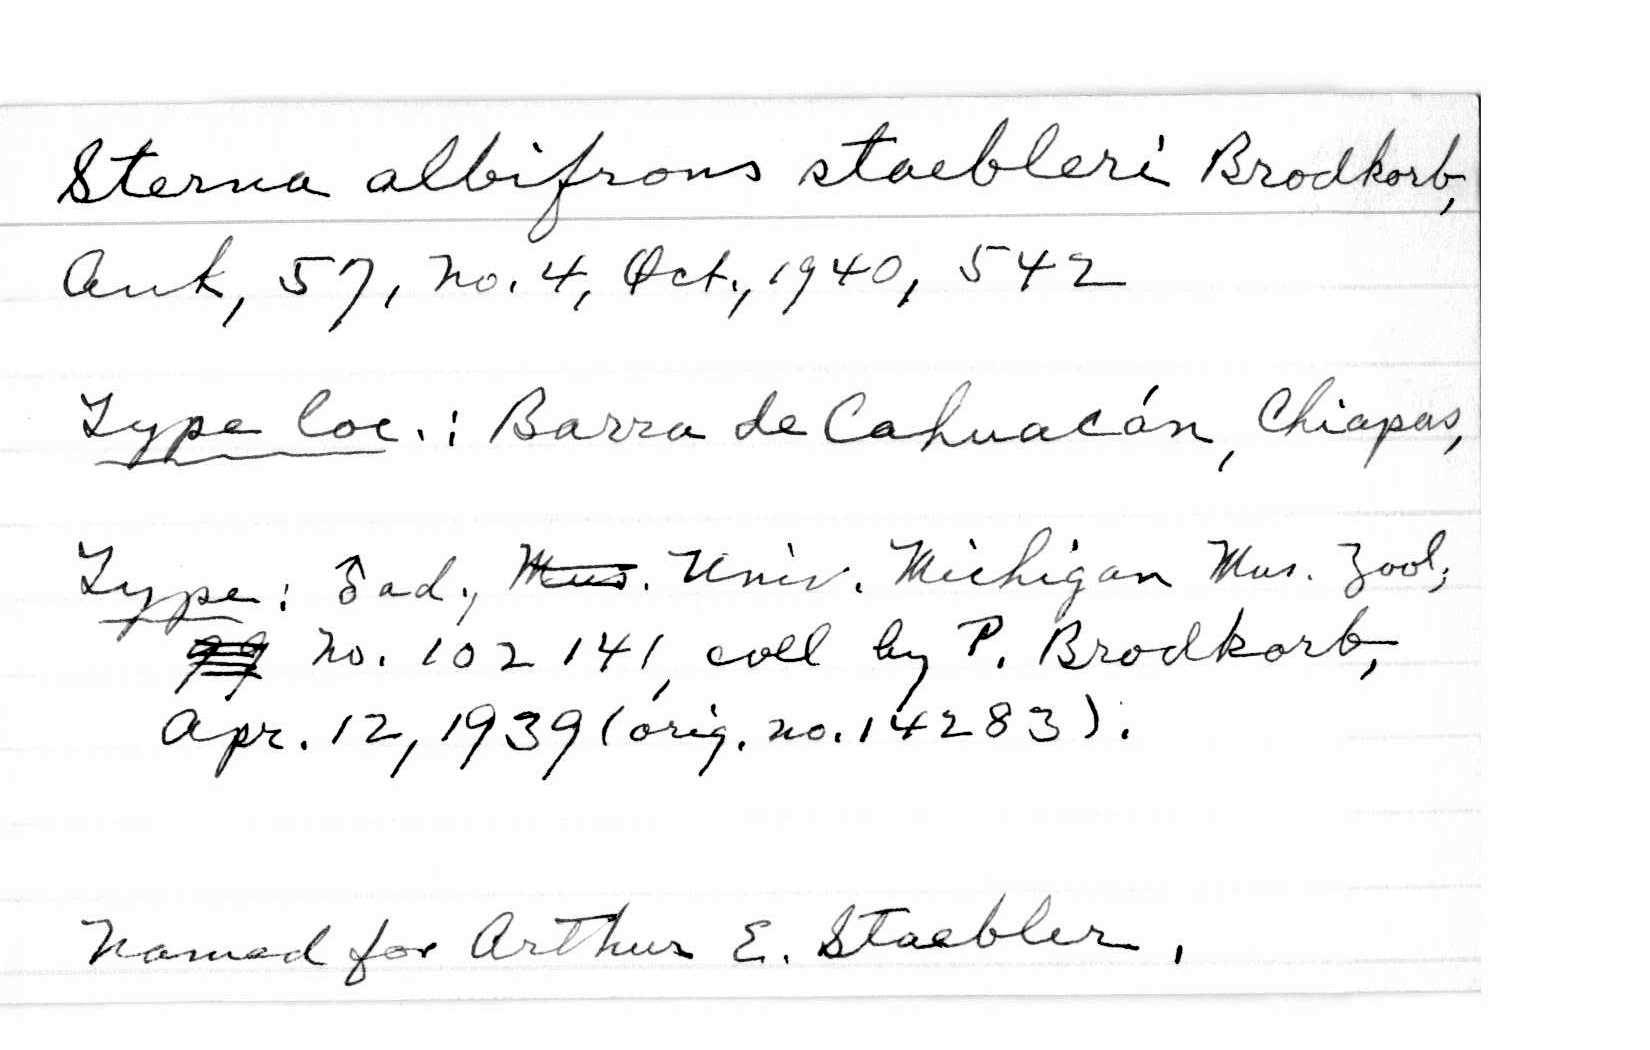 Sterna albifrons staebleri Brodkorb,
Auk, 57, no. 4, Oct., 1940, 542
Type loc.: Barra de Cahuacán, Chiapas,
Type: ♂ ad., Mus. Univ. Michigan Mus. Zool,
no. 102141, coll by P. Brodkorb,
Apr. 12, 1939 (orig. no. 14283).
Named for Arthur E. Staebler.